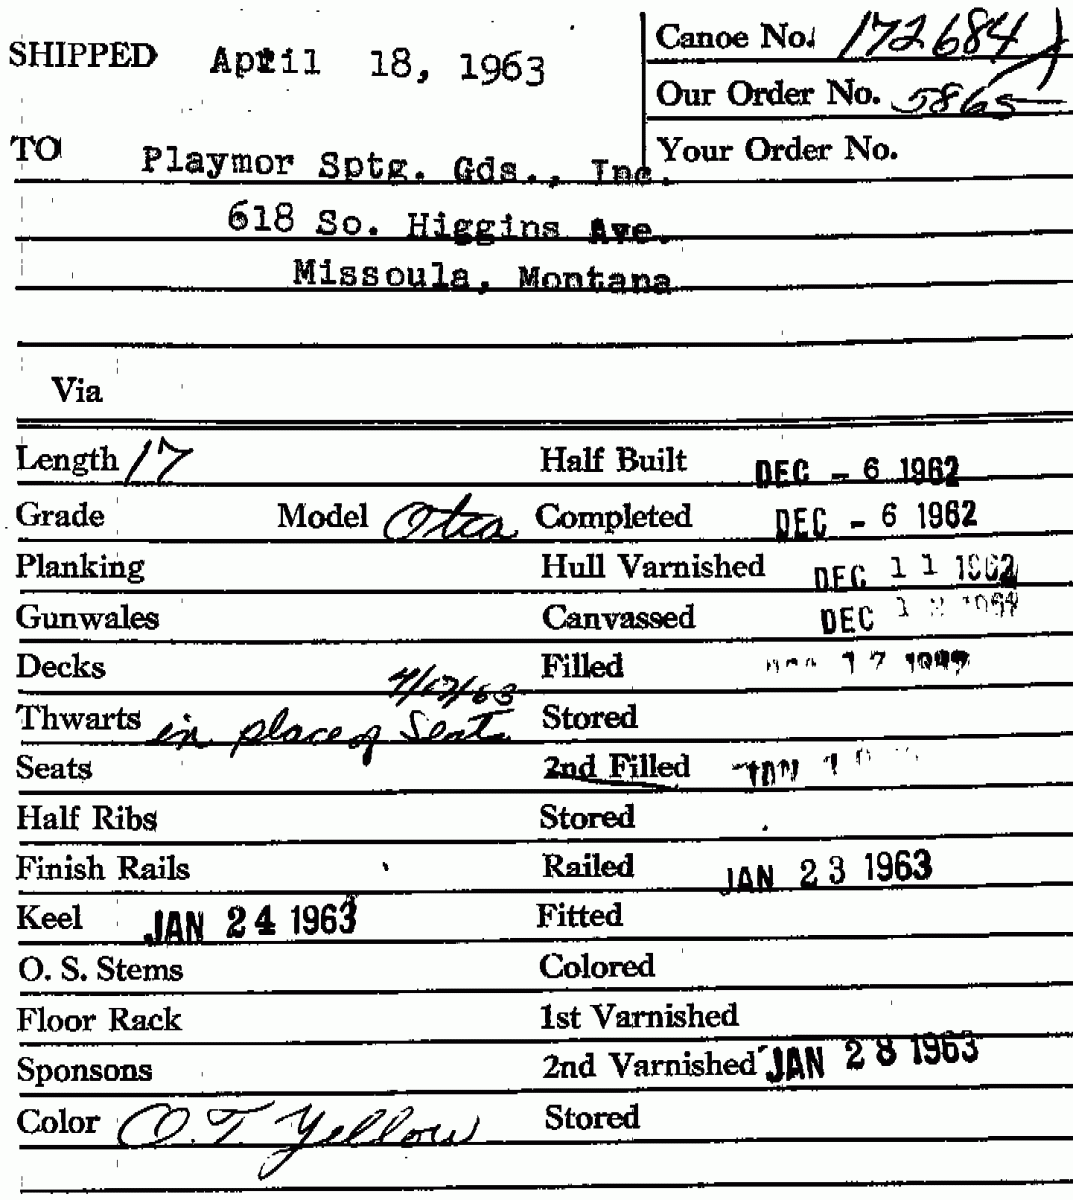 SHIPPED April 18, 1963
Canoe No. 172684
Our Order No. 5865
TO Playmor Sptg. Gds., Inc.
Your Order No.
618 So. Higgins Ave.
Missoula, Montana
Via
Length 17 Half Built DEC - 6 1962
Grade Model Otca Completed DEC - 6 1962
Planking Hull Varnished DEC 11 1962
Gunwales Canvassed DEC
Decks Filled 17
4/12/63
Thwarts in place of Seats Stored
Seats 2nd Filled
Half Ribs Stored
Finish Rails Railed JAN 23 1963
Keel JAN 24 1963 Fitted
O. S. Stems Colored
Floor Rack 1st Varnished
Sponsons 2nd Varnished JAN 28 1963
Color O.T. Yellow Stored